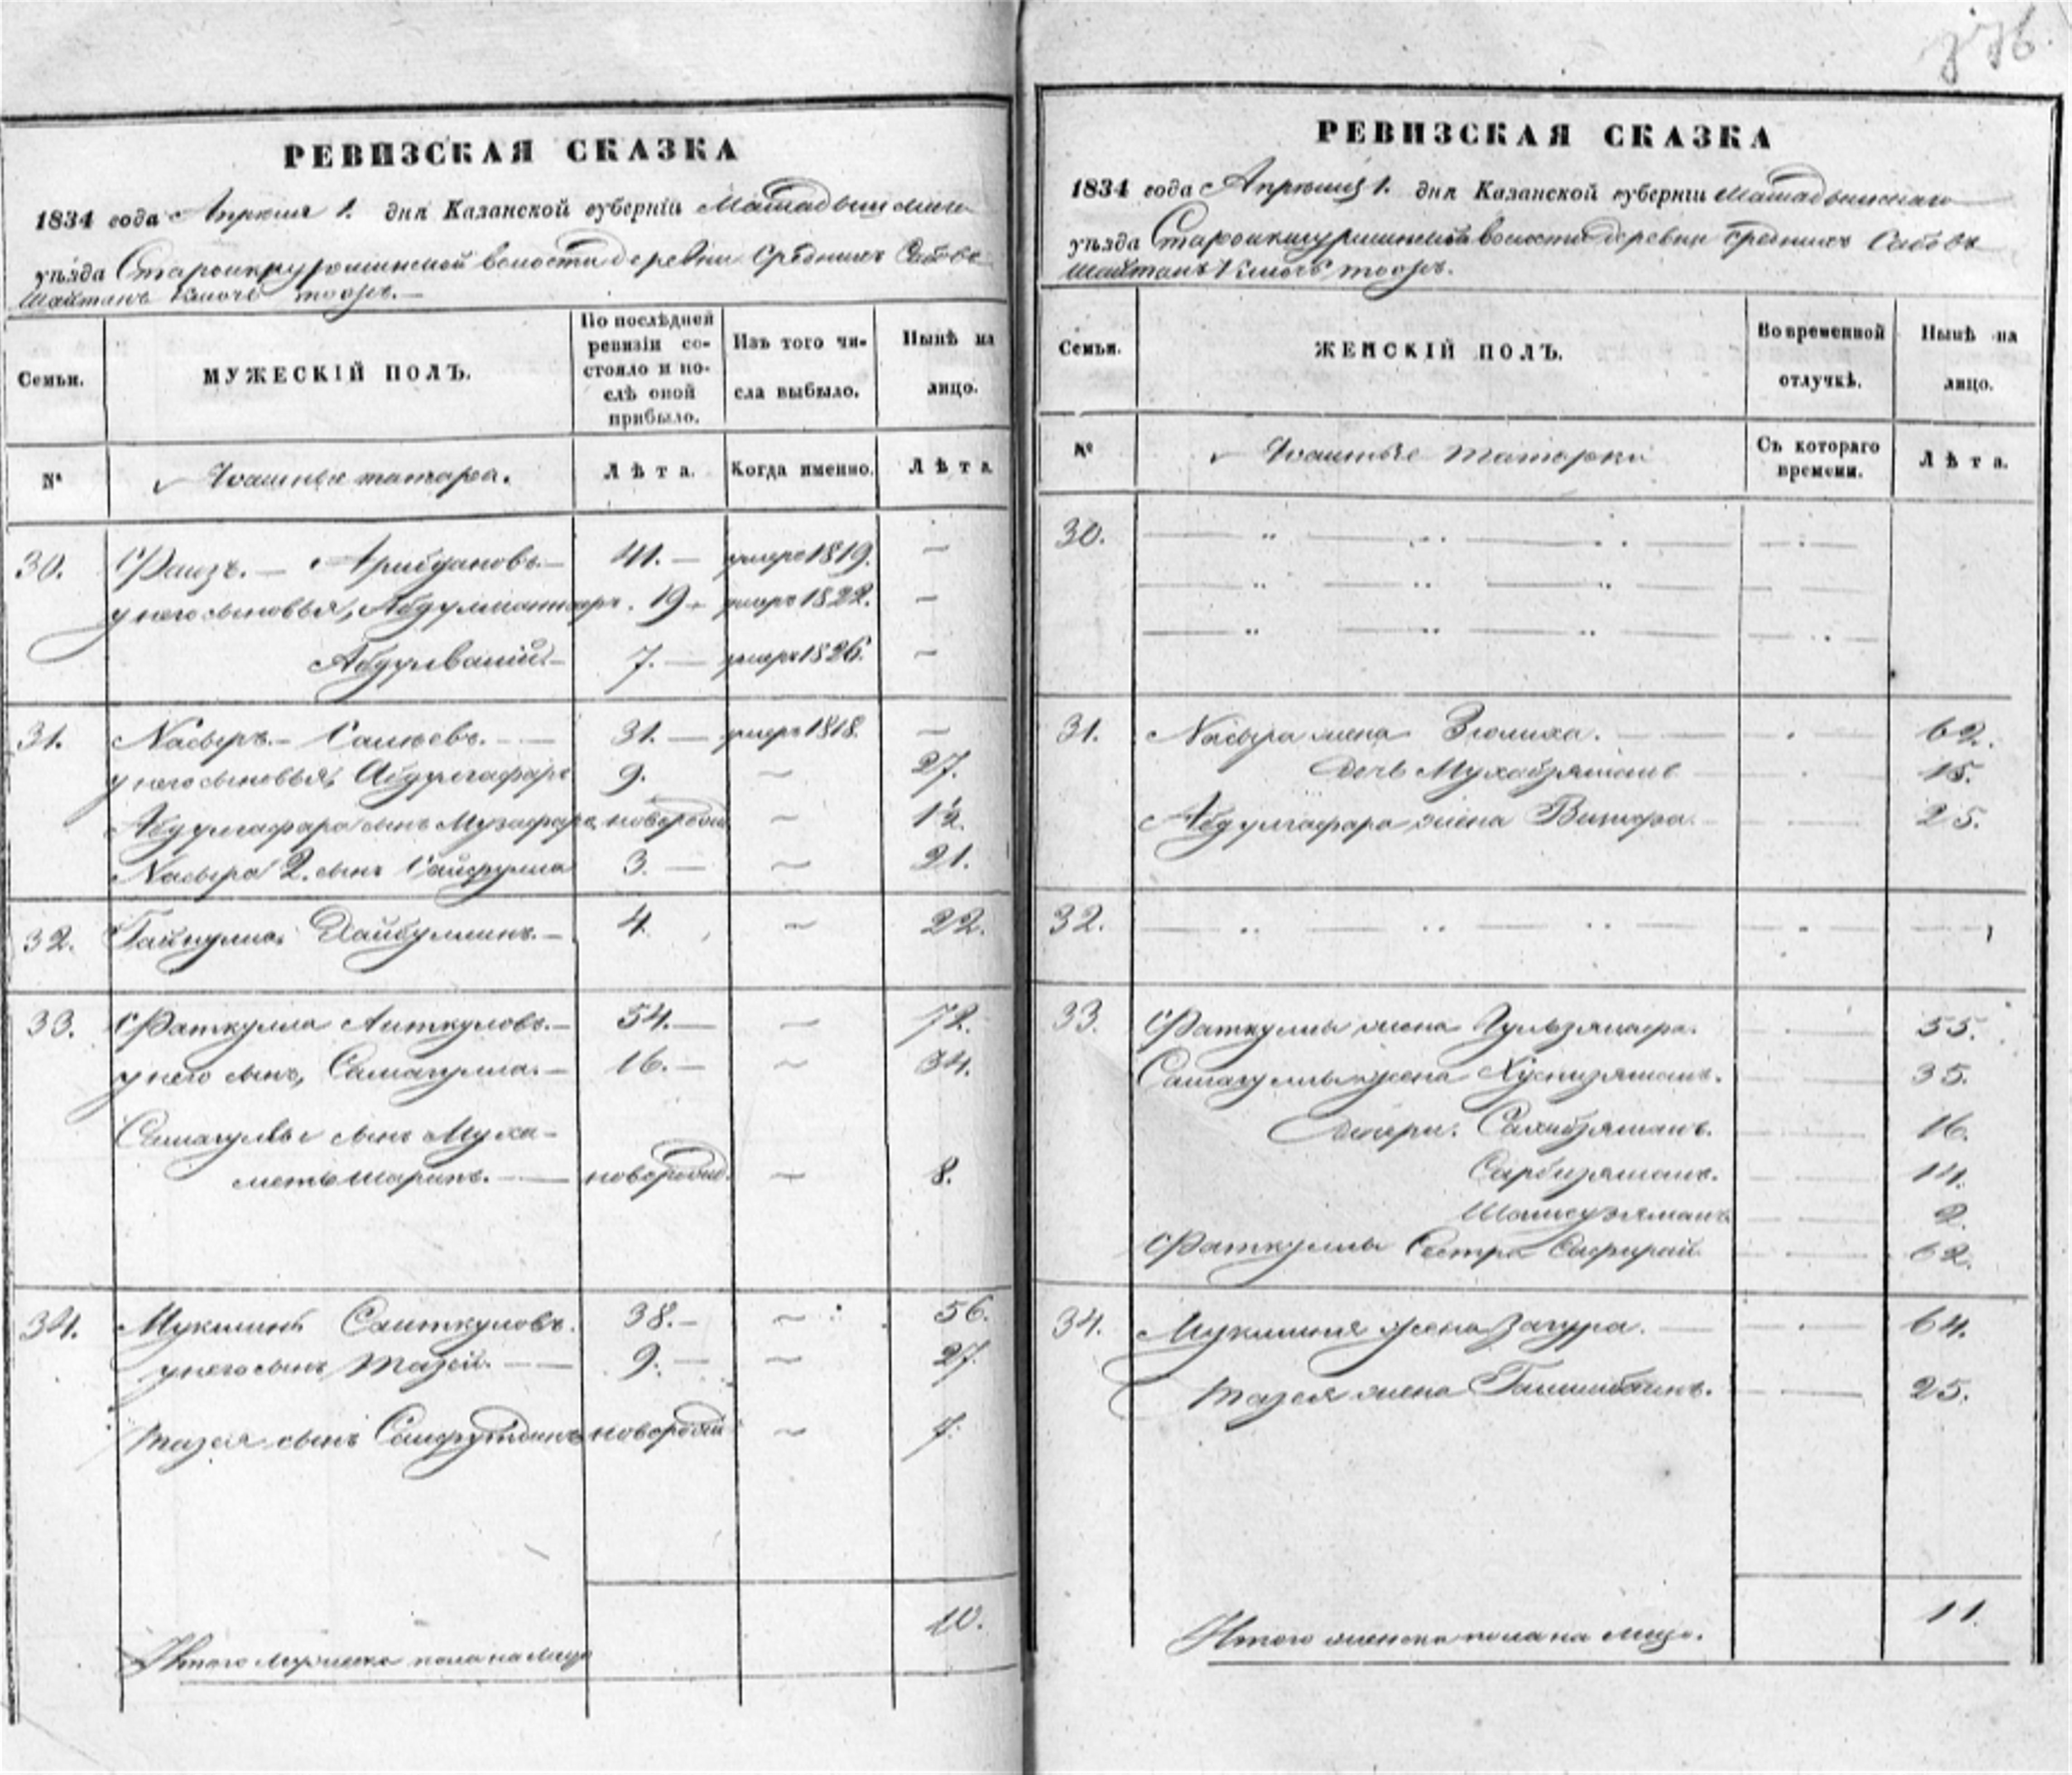 РЕВИЗСКАЯ СКАЗКА
1834 года Апреля 1. дня Казанской губерніи Мамадышскаго
уѣзда волости деревни Среднихъ Сабовъ
Шайтанъ Ключь тоожъ.
Семьи.
МУЖЕСКІЙ ПОЛЪ.
По послѣдней ревизіи состояло и послѣ оной прибыло.
Изъ того числа выбыло.
Нынѣ на лицо.
№
Ясашные татара.
Лѣта.
Когда именно.
Лѣта
30. Фаизъ. — 41. — умеръ 1819. —
у него сыновья, 19 — умеръ 1822. —
7. — умеръ 1826. —
31. Насыръ. — Салеевъ. — 31. — умеръ 1818. —
у него сыновья, Абдулгафаръ 9. — 27.
Абдулгафара сынъ Музафаръ новорожд. — 12.
Насыра 2. сынъ Сайфулла 3. — 21.
32. Хайбуллинъ. — 4. — 22.
33. Фаткулла Аиткуловъ. — 54. — 72.
у него сынъ, Самагулла. — 16. — 34.
Самагуллы сынъ Муха-
метьшарипъ. — новорожд. — 8.
34. Мукминъ Саиткуловъ. 38. — 56.
у него сынъ Тазей. — 9. — 27.
Тазея сынъ Сайфутдинъ новорожд. — 7.
Итого мужеска пола на лицо 10.
376.
РЕВИЗСКАЯ СКАЗКА
1834 года Апреля 1. дня Казанской губерніи Мамадышскаго
уѣзда волости деревни Среднихъ Сабовъ
Шайтанъ Ключь тоожъ.
Семьи.
ЖЕНСКІЙ ПОЛЪ.
Во временной отлучкѣ.
Нынѣ на лицо.
№
Ясашные татарки
Съ котораго времени.
Лѣта.
30.
31. Насыра жена Зюлиха. — 62.
Дочь Мухабзямалъ — 15.
Абдулгафара жена — 25.
32.
33. Фаткуллы жена — 55.
Самагуллы жена Хуснизямалъ. — 35.
Дочери: Сахибзямалъ. — 16.
Сарбизямалъ. — 14.
Шамсузямалъ — 2.
Фаткуллы Сестра — 62.
34. Мукминя жена Загура. — 64.
Тазея жена — 25.
Итого женска пола на лицо. 11.